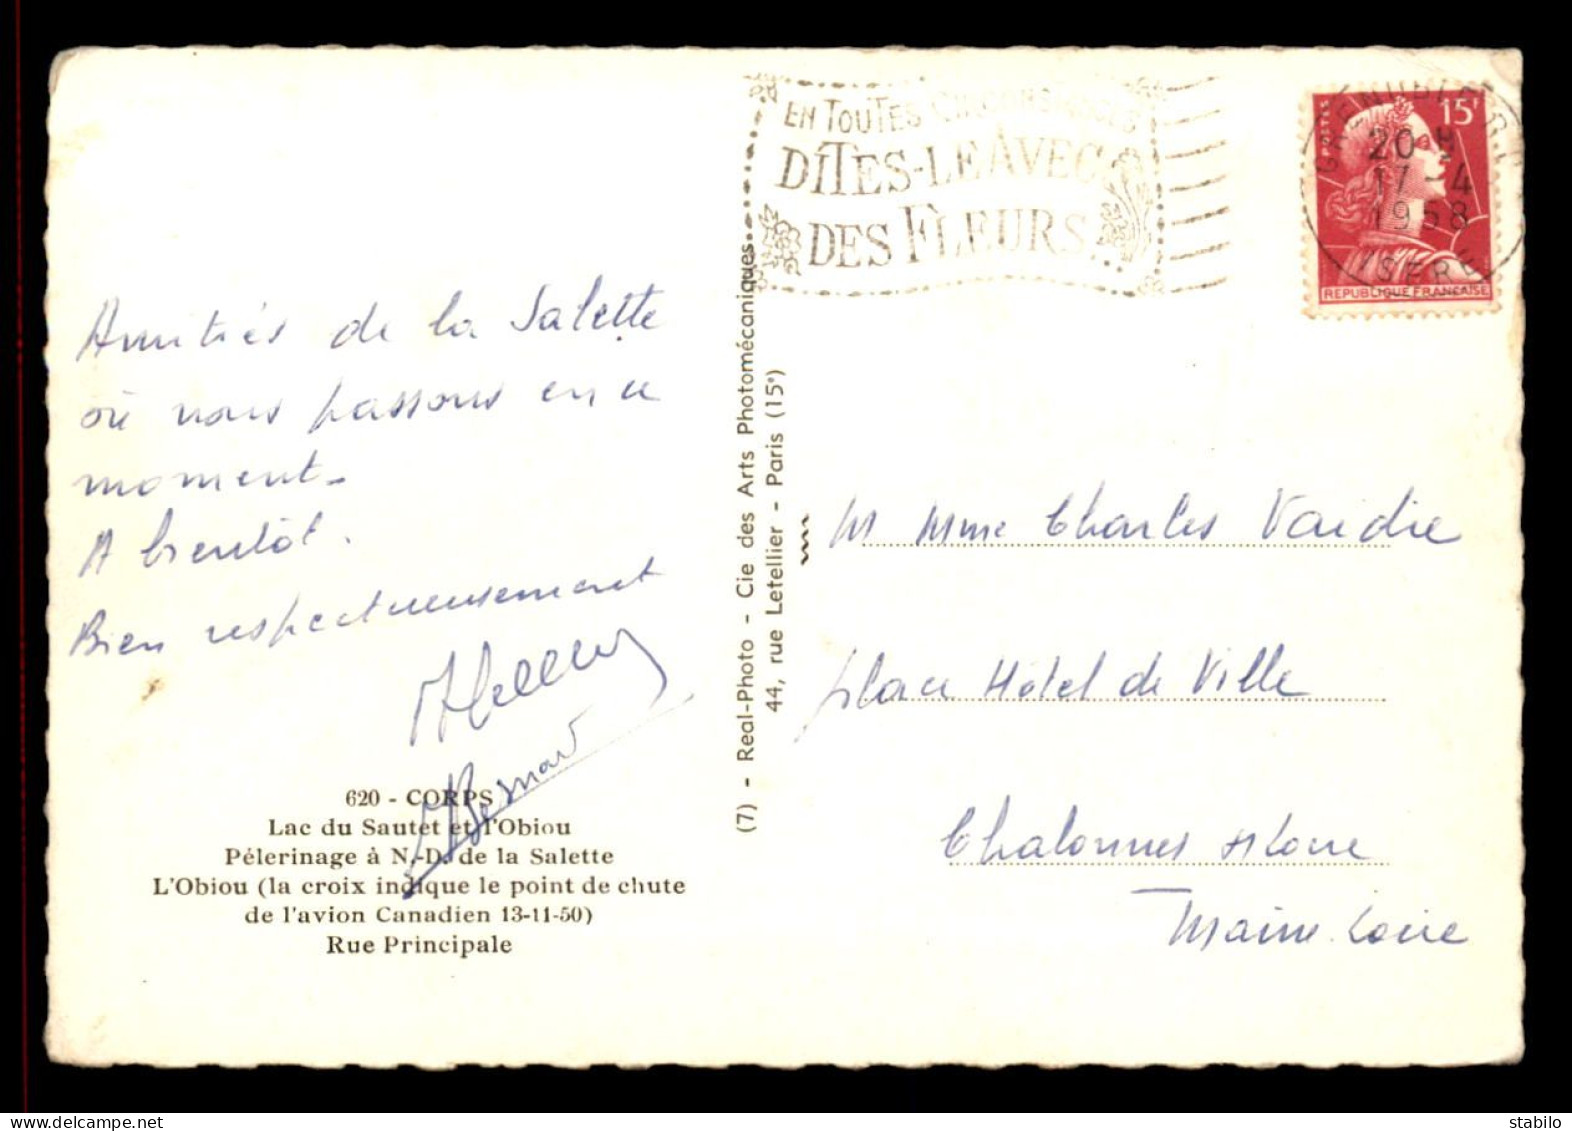 EN TOUTES CIRCONSTANCES
DITES-LE AVEC
DES FLEURS
GRENOBLE R.P.
20 H
17 - 4
1958
ISERE
POSTES
15F
REPUBLIQUE FRANÇAISE
Amitiés de la Salette
où nous passons en ce
moment -
A bientôt.
Bien respectueusement
Besnard
620 - CORPS
Lac du Sautet et l'Obiou
Pèlerinage à N.-D. de la Salette
L'Obiou (la croix indique le point de chute
de l'avion Canadien 13-11-50)
Rue Principale
(7) - Real-Photo - Cie des Arts Photomécaniques
44, rue Letellier - Paris (15e)
M Mme Charles Vaidie
place Hôtel de Ville
Chalonnes s/Loire
Maine. Loire
delcampe.net
stabilo